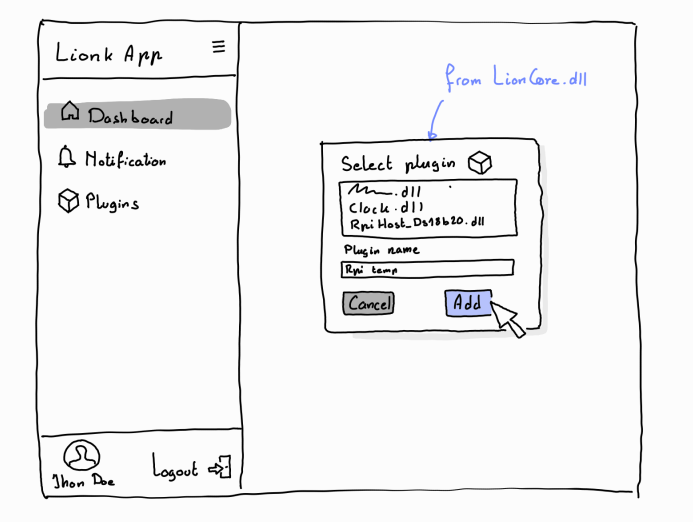 Lionk App
Dashboard
Notification
Plugins
Jhon Doe
Logout
from LionCore.dll
Select plugin
.dll
Clock.dll
RpiHost_Ds18b20.dll
Plugin name
Rpi temp
Cancel
Add